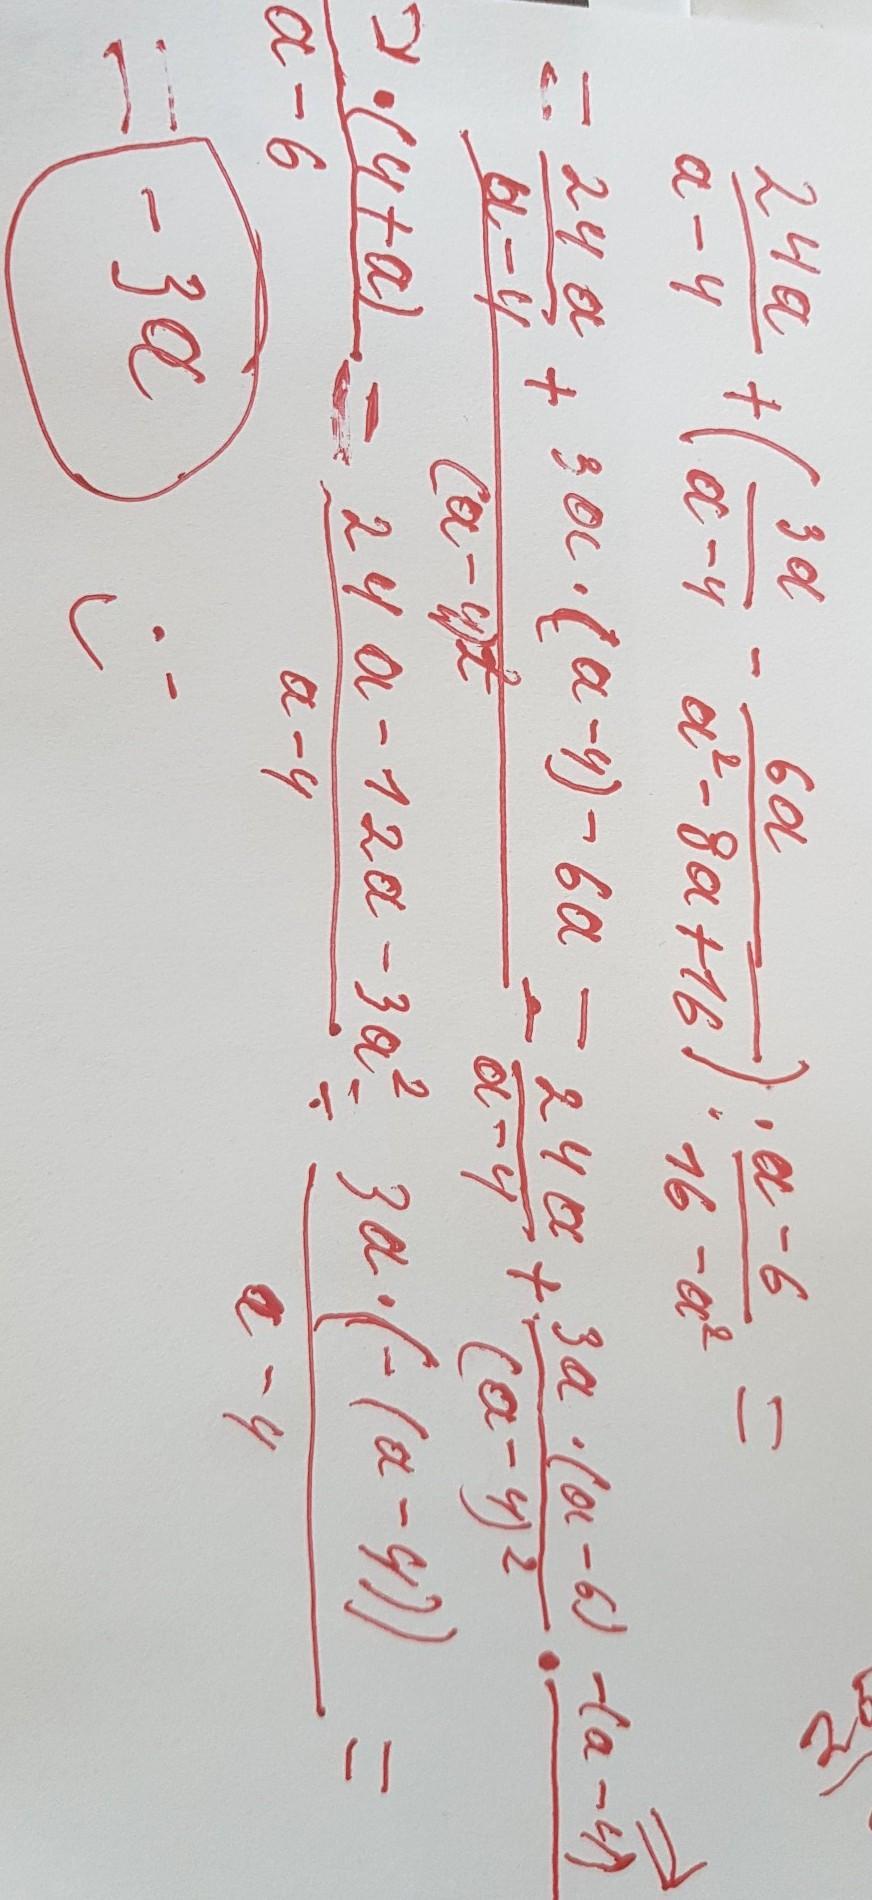 24a/(a-4) + (3a/(a-4) - 6a/(a²-8a+16)) : (a-6)/(16-a²) =
= 24a/(a-4) + (3a·(a-4)-6a)/(a-4)² = 24a/(a-4) + 3a·(a-6)/(a-4)² · -(a-4)
·(4+a)/(a-6) = (24a-12a-3a²)/(a-4) = 3a·(-(a-4))/(a-4) =
= -3a